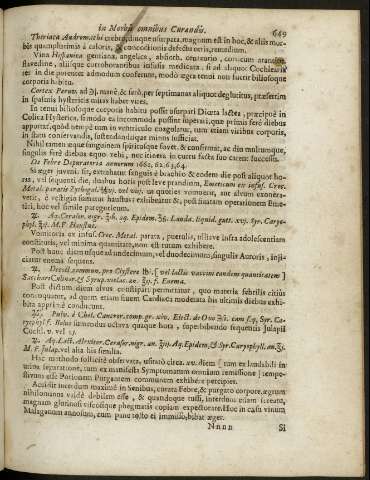 in Morbis omnibus Curandis.
649
Theriaca Andromachi crebro, diuque usurpata, magnum est in hoc, & aliis mor-
bis quamplurimis à caloris, & concoctionis defectu ortis, remedium.
Vina Hispanica gentiana, angelica, absinth. centaurio, corticum aurant.
flavedine, aliisque corroborantibus infusis medicata, si ad aliquot Cochlearia
ter in die potentur admodum conferunt, modò ægra tenui non fuerit bilioso que
corporis habitu.
Cortex Peruv. ad Ði. manè, & serò, per septimanas aliquot deglutitus, præsertim
in spasmis hystericis miras habet vires.
In tenui biliosoque corporis habitu possit usurpari Diæta lactea, præcipuè in
Colica Hysterica, si modo ea incommoda possint superari, quæ primis ferè diebus
apportat, quòd nempè tum in ventriculo coagulatur, tum etiam viribus corporis,
in statu conservandis, sustentandisque minus sufficiat.
Nihil tamen æque sanguinem spiritusque fovet, & confirmat, ac diu multumque,
singulis ferè diebus equo vehi, nec itinera in curru facta suo carent successu.
De Febre Depuratoria annorum 1661, 62, 63, 64.
Si æger juvenis sit, extrahatur sanguis è brachio & eodem die post aliquot ho-
ras, vel sequenti die, duabus horis post leve prandium, Emeticum ex infus. Croc.
Metal. paratis
vel oxy.
ut quoties vomuerit, aut alvum exonera-
verit, è vestigio semissis hauriatur; & post finitam operationem Eme-
tici, hoc vel simile paregoricum.
♃. Aq. Cerasor. nigr. ℥iß. aq. Epidem. ℥ß. Lauda. liquid. gutt. xvj. Syr. Caryo-
phyl. ℥ij. M. F. Haustus.
Vomitoria ex infus. Croc. Metal. parata, puerulis, nectare infra adolescentiam
constitutis, vel minima quantitate, non est tutum exhibere.
Post hunc diem usque ad undecimum, vel duodecimum, singulis Auroris, inji-
ciatur enema sequens.
♃. Decoct. commun. pro Clystere lbi. [ vel lactis vaccini eandem quantitatem ]
Sacchari Culinar. & Syrup. violac. an. ℥ij. F. Enema.
Post dictum diem alvus constipari permittatur, quo materia febrilis citiùs
concoquatur, ad quem etiam finem Cardiaca moderata his ultimis diebus exhi-
bita apprime conducunt.
♃. Pulv. è Chel. Cancror. comp. gr. xiv. Elect. de Ovo Ðß. cum s.q. Syr. Ca-
ryophyl. F. Bolus sumendus octava quaque hora, superbibendo sequentis Julapii
Cochl. v. vel
♃. Aq. Lact. Alexiter. Cerasor. nigr. an. ℥iij. Aq. Epidem. & Syr. Caryophyll. an. ℥i.
M. F. Julap. vel alia his similia.
Hac methodo sollicitè observata, usitatò circa xv. diem [ tum ex laudabili in
urina separatione, tum ex manifesta Symptomatum omnium remissione ] tempe-
stivum esse Potionem Purgantem communem exhibere percipies.
Accidit interdum maximè in Senibus, curata Febre, & purgato corpore, ægrum
nihilominus valdè debilem esse, & quandoque tussi, interdum etiam screatu,
magnam glutinosi viscosique phegmatis copiam expectorare. Hoc in casu vinum
Malaganum annosum, cum pane tosto ei immisso, bibat æger.
Nnnn
Si